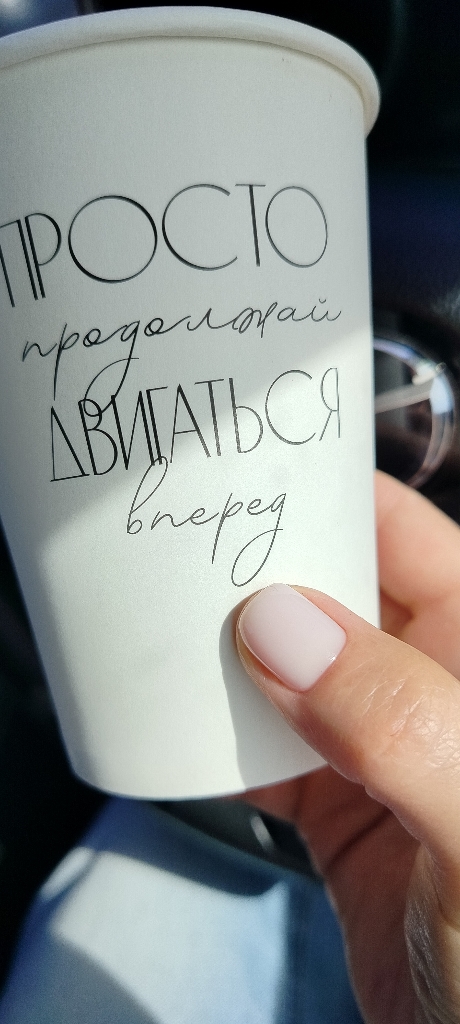 ПРОСТО
продолжай
ДВИГАТЬСЯ
вперед